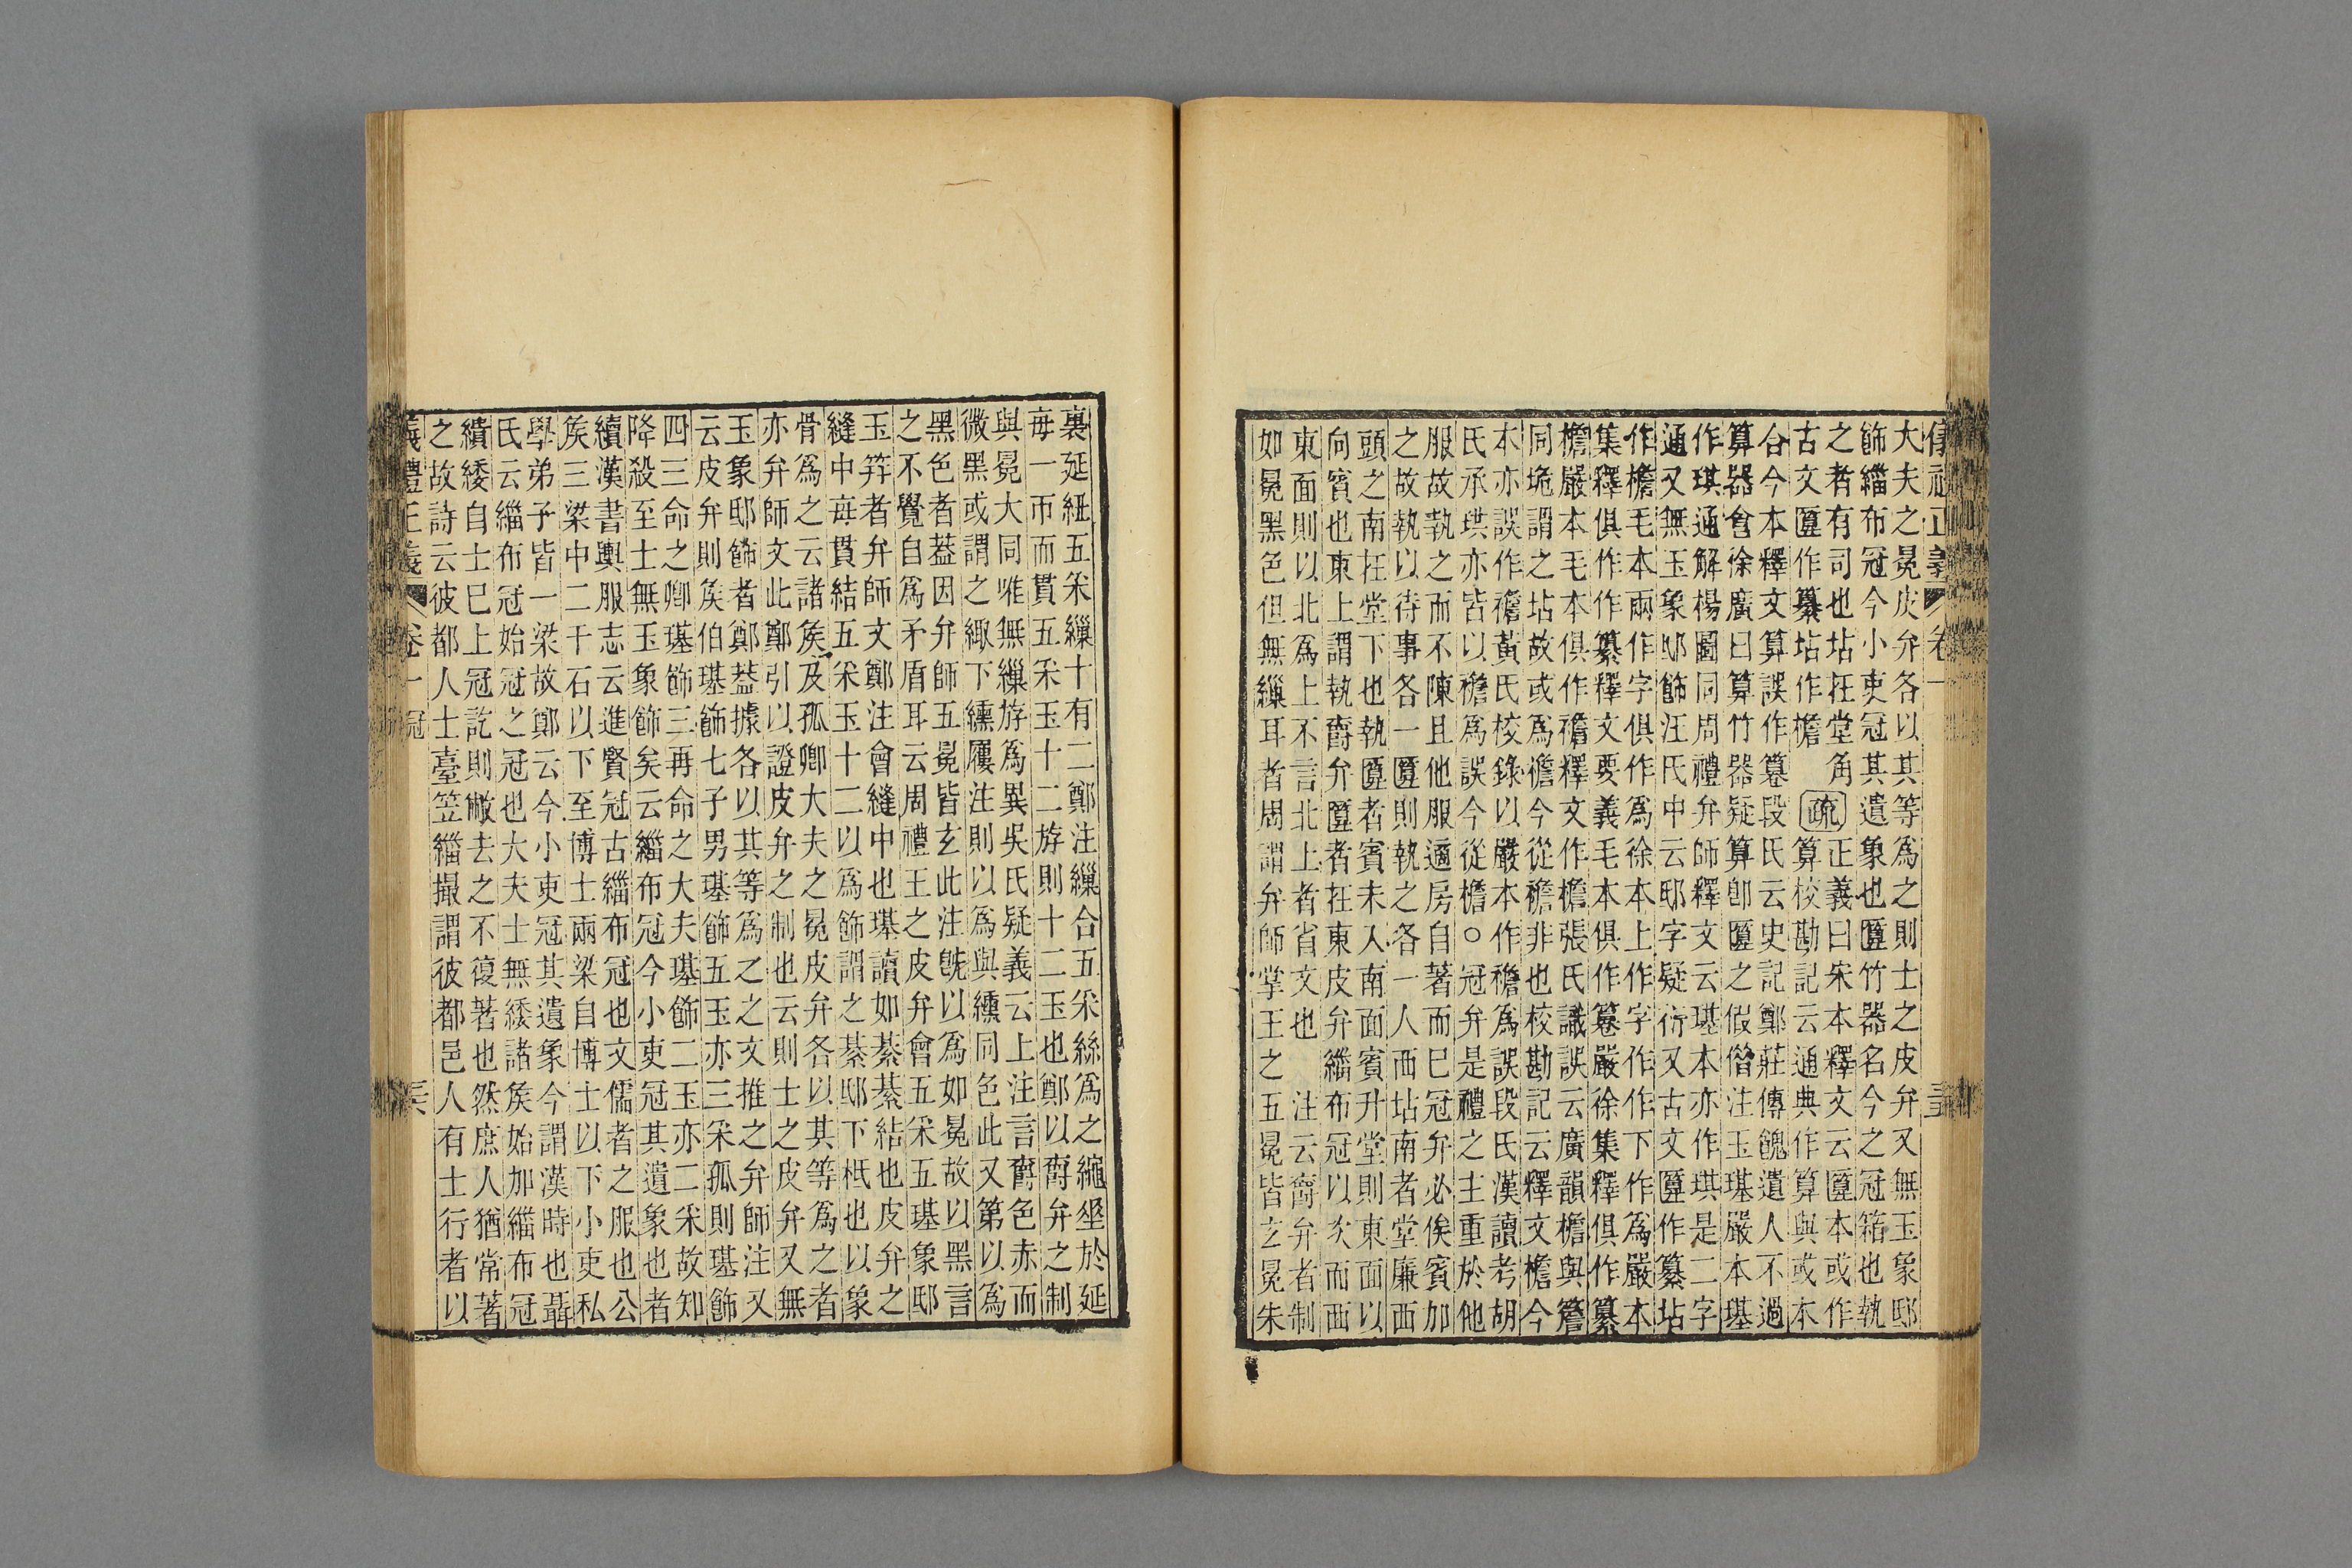 大夫之冕皮弁各以其等爲之則士之皮弁又無玉象邸
飾緇布冠今小吏冠其遺象也匴竹器名今之冠箱也執
之者有司也坫在堂角
疏
正義曰宋本釋文云匴本或作
古文匴作篹坫作檐
算校勘記云通典作算與或本
合今本釋文算誤作篹段氏云史記鄭莊傳餽遺人不過
算器會徐廣曰算竹器疑算卽匴之假借注玉璂嚴本璂
作琪通解楊圖同周禮弁師釋文云璂本亦作琪是二字
通又無玉象邸飾汪氏中云邸字疑衍又古文匴作纂坫
作檐毛本兩作字俱作爲徐本上作字作作下作爲嚴本
集釋俱作作纂釋文要義毛本俱作篹嚴徐集釋俱作纂
檐嚴本毛本俱作襜釋文作檐張氏識誤云廣韻檐與簷
同垝謂之坫故或爲襜今從襜非也校勘記云釋文檐今
本亦誤作襜黃氏校錄以嚴本作襜爲誤段氏漢讀考胡
氏承珙亦皆以襜爲誤今從檐○冠弁是禮之主重於他
服故執之而不陳且他服適房自著而巳冠弁必俟賓加
之故執以待事各一匴則執之各一人西坫南者堂廉西
頭之南在堂下也執匴者賓未入南面賓升堂則東面以
向賓也東上謂執爵弁匴者在東皮弁緇布冠以次而西
東面則以北爲上不言北上者省文也 注云爵弁者制
如冕黑色但無繅耳者周謂弁師掌王之五冕皆玄冕朱
裏延紐五采繅十有二鄭注繅合五采絲爲之繩垂於延
每一帀而貫五采玉十二斿則十二玉也鄭以爵弁之制
與冕大同唯無繅斿爲異吳氏疑義云上注言爵色赤而
微黑或謂之緅下纁屨注則以爲與纁同色此又第以爲
黑色者葢因弁師五冕皆玄此注旣以爲如冕故以黑言
之不覺自爲矛盾耳云周禮王之皮弁會五采五璂象邸
玉笄者弁師文鄭注會縫中也璂讀如綦綦結也皮弁之
縫中每貫結五采玉十二以爲飾謂之綦邸下柢也以象
骨爲之云諸矦及孤卿大夫之冕皮弁各以其等爲之者
亦弁師文此鄭引以證皮弁之制也云則士之皮弁又無
玉象邸飾者鄭葢據各以其等爲之之文推之弁師注又
云皮弁則矦伯璂飾七子男璂飾五玉亦三采孤則璂飾
四三命之卿璂飾三再命之大夫璂飾二玉亦二采故知
降殺至士無玉象飾矣云緇布冠今小吏冠其遺象也者
續漢書輿服志云進賢冠古緇布冠也文儒者之服也公
矦三梁中二千石以下至博士兩梁自博士以下小吏私
學弟子皆一梁故鄭云今小吏冠其遺象今謂漢時也聶
氏云緇布冠始冠之冠也大夫士無緌諸矦始加緇布冠
繢緌自士巳上冠訖則敝去之不復著也然庶人猶常著
之故詩云彼都人士臺笠緇撮謂彼都邑人有士行者以